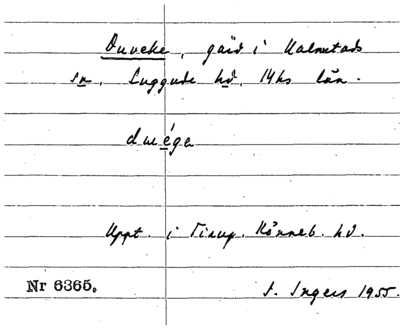 Duveke, gård i Kalmstads
sn, Luggude hd, Mhs län.
duvéga
Uppt. i Tirup. Rönneb. hd.
Nr 6365. I. Ingers 1955.